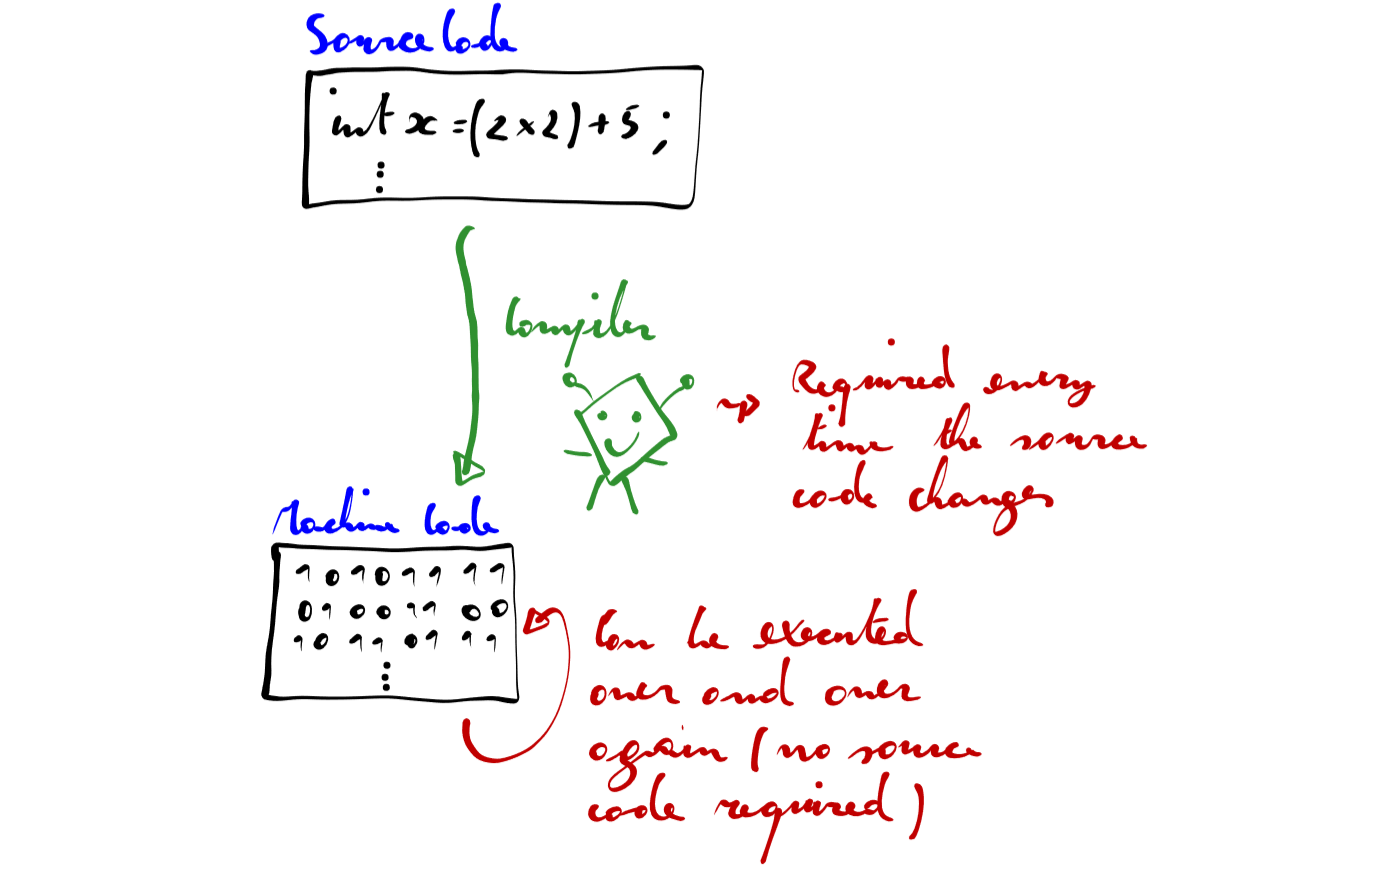 Source Code
int x = (2 × 2) + 5 ;
⋮
Compiler
Required every
time the source
code changes
Machine Code
1 0 1 0 1 1 1 1
0 1 0 0 1 1 0 0
1 0 1 1 0 1 1 1
⋮
Can be executed
over and over
again (no source
code required)